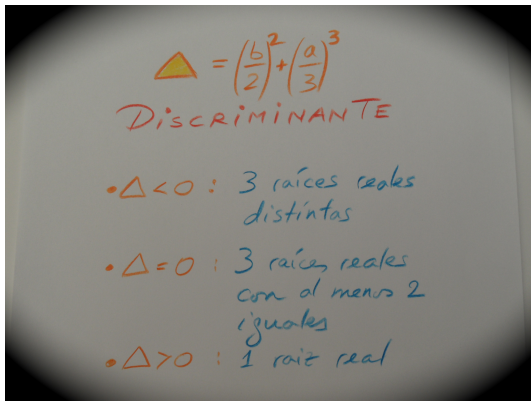 △ = (b/2)² + (a/3)³
DISCRIMINANTE
• △ < 0 : 3 raíces reales
distintas
• △ = 0 : 3 raíces reales
con al menos 2
iguales
• △ > 0 : 1 raiz real